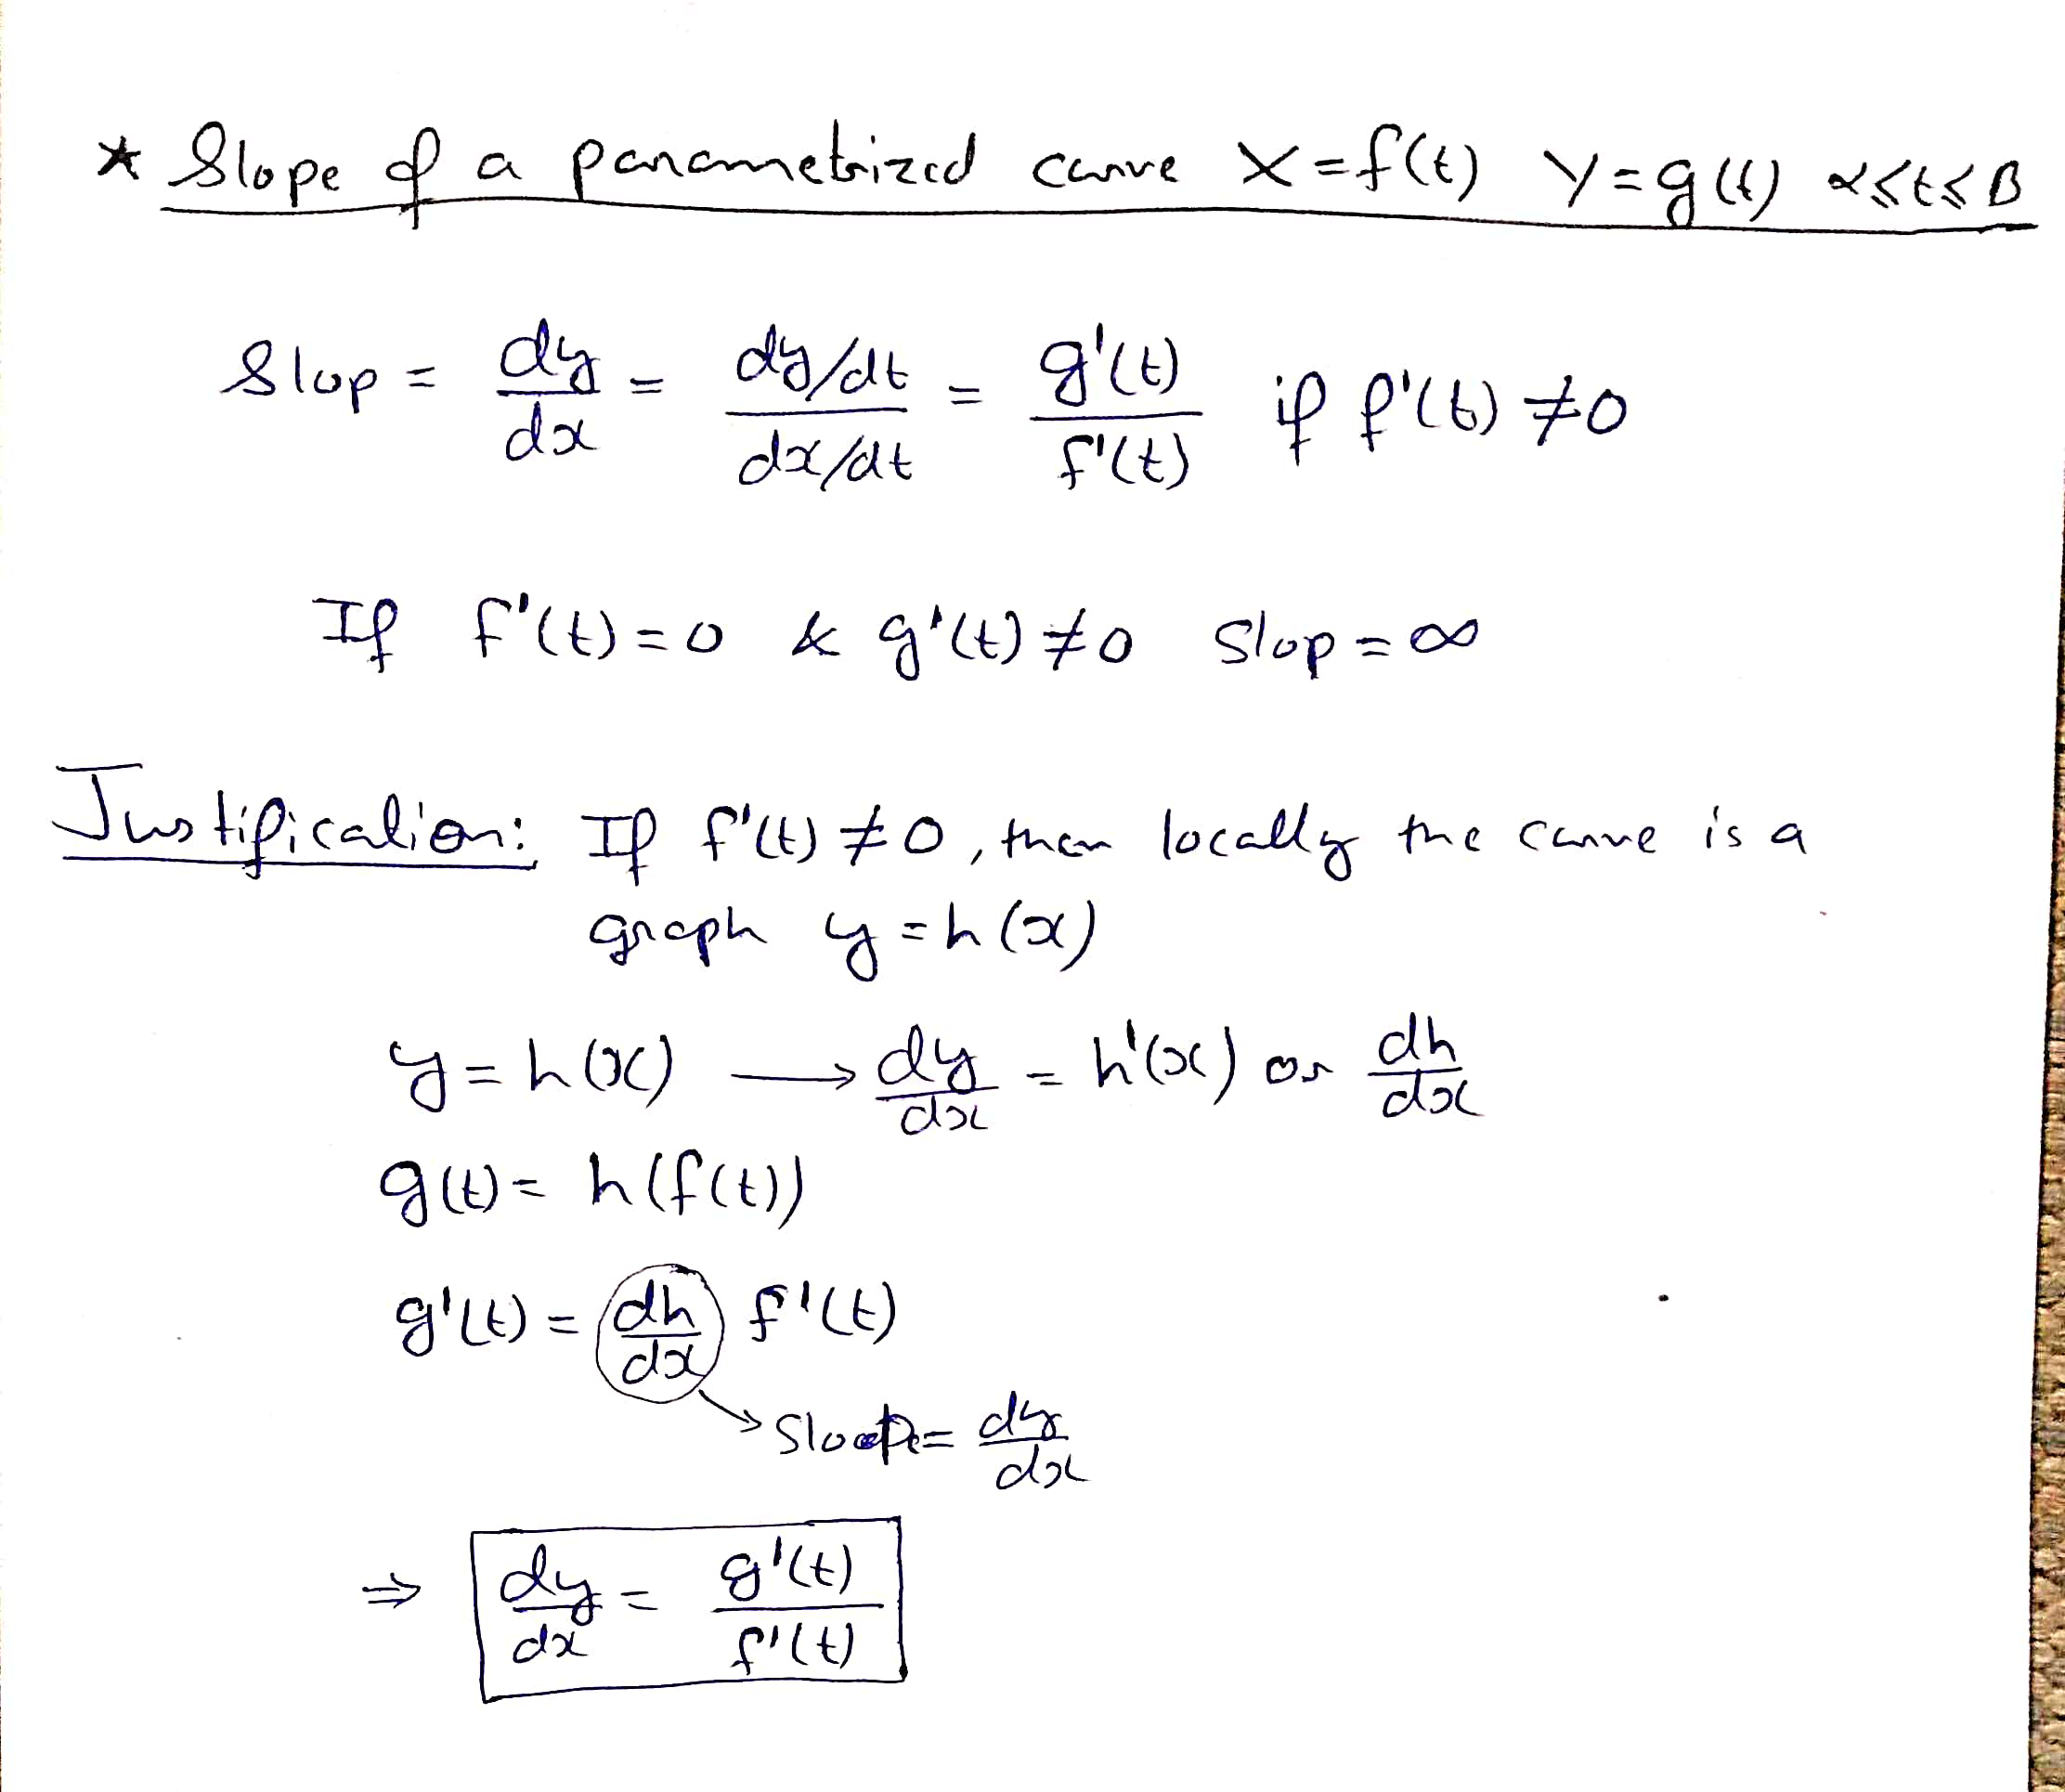 * Slope of a parametrized curve X=f(t) Y=g(t) α≤t≤β
Slop = dy/dx = (dy/dt)/(dx/dt) = g'(t)/f'(t) if f'(t) ≠0
If f'(t)=0 & g'(t)≠0 Slop=∞
Justification: If f'(t)≠0, then locally the curve is a
graph y=h(x)
y=h(x) → dy/dx = h'(x) or dh/dx
g(t)= h(f(t))
g'(t)= dh/dx f'(t)
→ Sloope= dy/dx
⇒ dy/dx = g'(t)/f'(t)